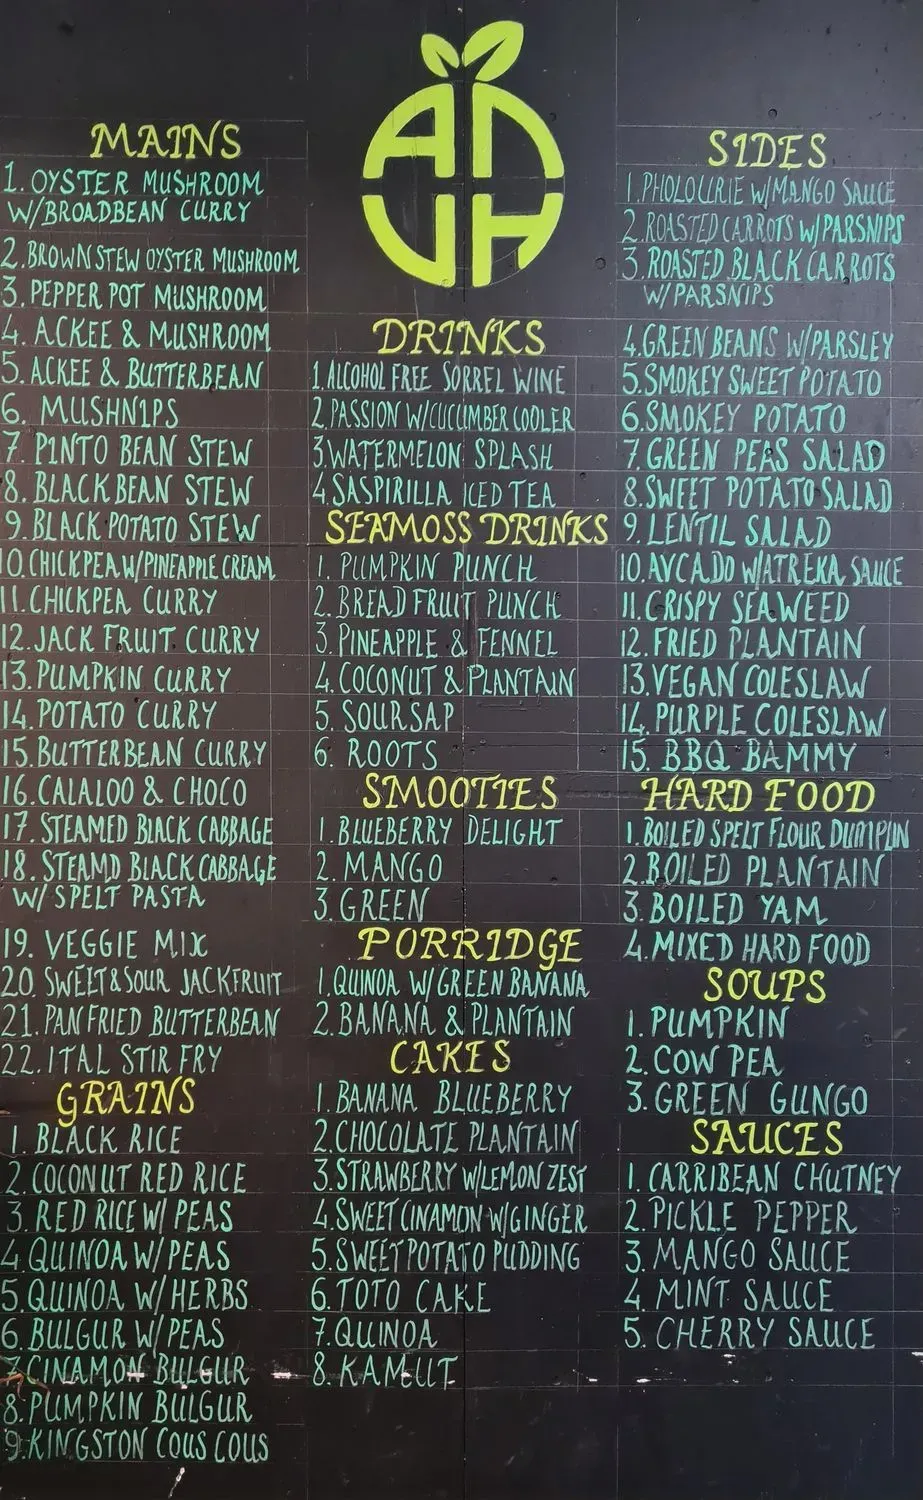 ANUH
MAINS
1. OYSTER MUSHROOM
W/BROADBEAN CURRY
2. BROWN STEW OYSTER MUSHROOM
3. PEPPER POT MUSHROOM
4. ACKEE & MUSHROOM
5. ACKEE & BUTTERBEAN
6. MUSHNIPS
7. PINTO BEAN STEW
8. BLACK BEAN STEW
9. BLACK POTATO STEW
10. CHICKPEA W/PINEAPPLE CREAM
11. CHICKPEA CURRY
12. JACK FRUIT CURRY
13. PUMPKIN CURRY
14. POTATO CURRY
15. BUTTERBEAN CURRY
16. CALALOO & CHOCO
17. STEAMED BLACK CABBAGE
18. STEAMD BLACK CABBAGE
W/ SPELT PASTA
19. VEGGIE MIX
20. SWEET & SOUR JACKFRUIT
21. PAN FRIED BUTTERBEAN
22. ITAL STIR FRY
GRAINS
1. BLACK RICE
2. COCONUT RED RICE
3. RED RICE W/ PEAS
4. QUINOA W/PEAS
5. QUINOA W/HERBS
6. BULGUR W/PEAS
7. CINAMON BULGUR
8. PUMPKIN BULGUR
9. KINGSTON COUS COUS
DRINKS
1. ALCOHOL FREE SORREL WINE
2. PASSION W/CUCUMBER COOLER
3. WATERMELON SPLASH
4. SASPIRILLA ICED TEA
SEAMOSS DRINKS
1. PUMPKIN PUNCH
2. BREAD FRUIT PUNCH
3. PINEAPPLE & FENNEL
4. COCONUT & PLANTAIN
5. SOURSAP
6. ROOTS
SMOOTIES
1. BLUEBERRY DELIGHT
2. MANGO
3. GREEN
PORRIDGE
1. QUINOA W/GREEN BANANA
2. BANANA & PLANTAIN
CAKES
1. BANANA BLUEBERRY
2. CHOCOLATE PLANTAIN
3. STRAWBERRY W/LEMON ZEST
4. SWEET CINAMON W/GINGER
5. SWEET POTATO PUDDING
6. TOTO CAKE
7. QUINOA
8. KAMUT
SIDES
1. PHOLOURIE W/MANGO SAUCE
2. ROASTED CARROTS W/PARSNIPS
3. ROASTED BLACK CARROTS
W/PARSNIPS
4. GREEN BEANS W/PARSLEY
5. SMOKEY SWEET POTATO
6. SMOKEY POTATO
7. GREEN PEAS SALAD
8. SWEET POTATO SALAD
9. LENTIL SALAD
10. AVCADO W/ATREKA SAUCE
11. CRISPY SEAWEED
12. FRIED PLANTAIN
13. VEGAN COLESLAW
14. PURPLE COLESLAW
15. BBQ BAMMY
HARD FOOD
1. BOILED SPELT FLOUR DUMPLIN
2. BOILED PLANTAIN
3. BOILED YAM
4. MIXED HARD FOOD
SOUPS
1. PUMPKIN
2. COW PEA
3. GREEN GUNGO
SAUCES
1. CARRIBEAN CHUTNEY
2. PICKLE PEPPER
3. MANGO SAUCE
4. MINT SAUCE
5. CHERRY SAUCE